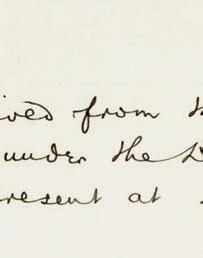 ived from
under the
resent at